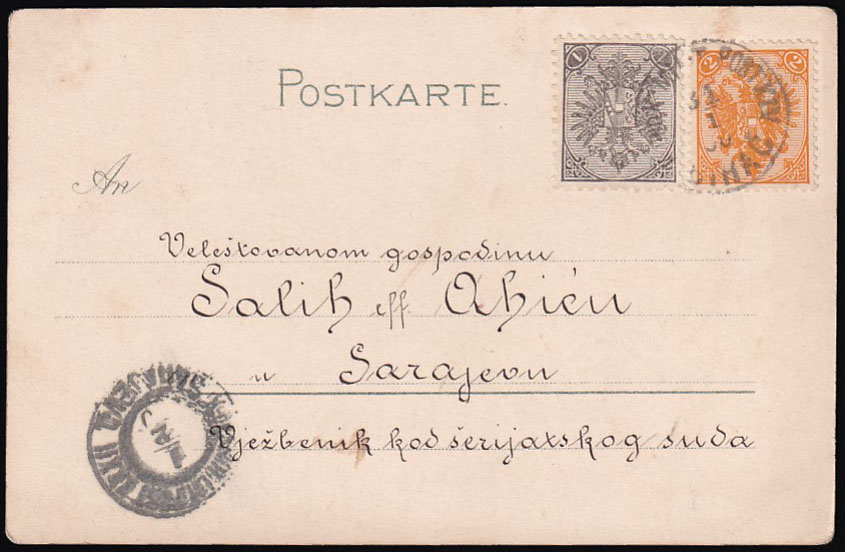 POSTKARTE.
1 1
2 2
BIHAĆ
An
Veleštovanom gospodinu
Salih eff. Ahiću
u Sarajevu
Vježbenik kod šerijatskog suda
SARAJEVO